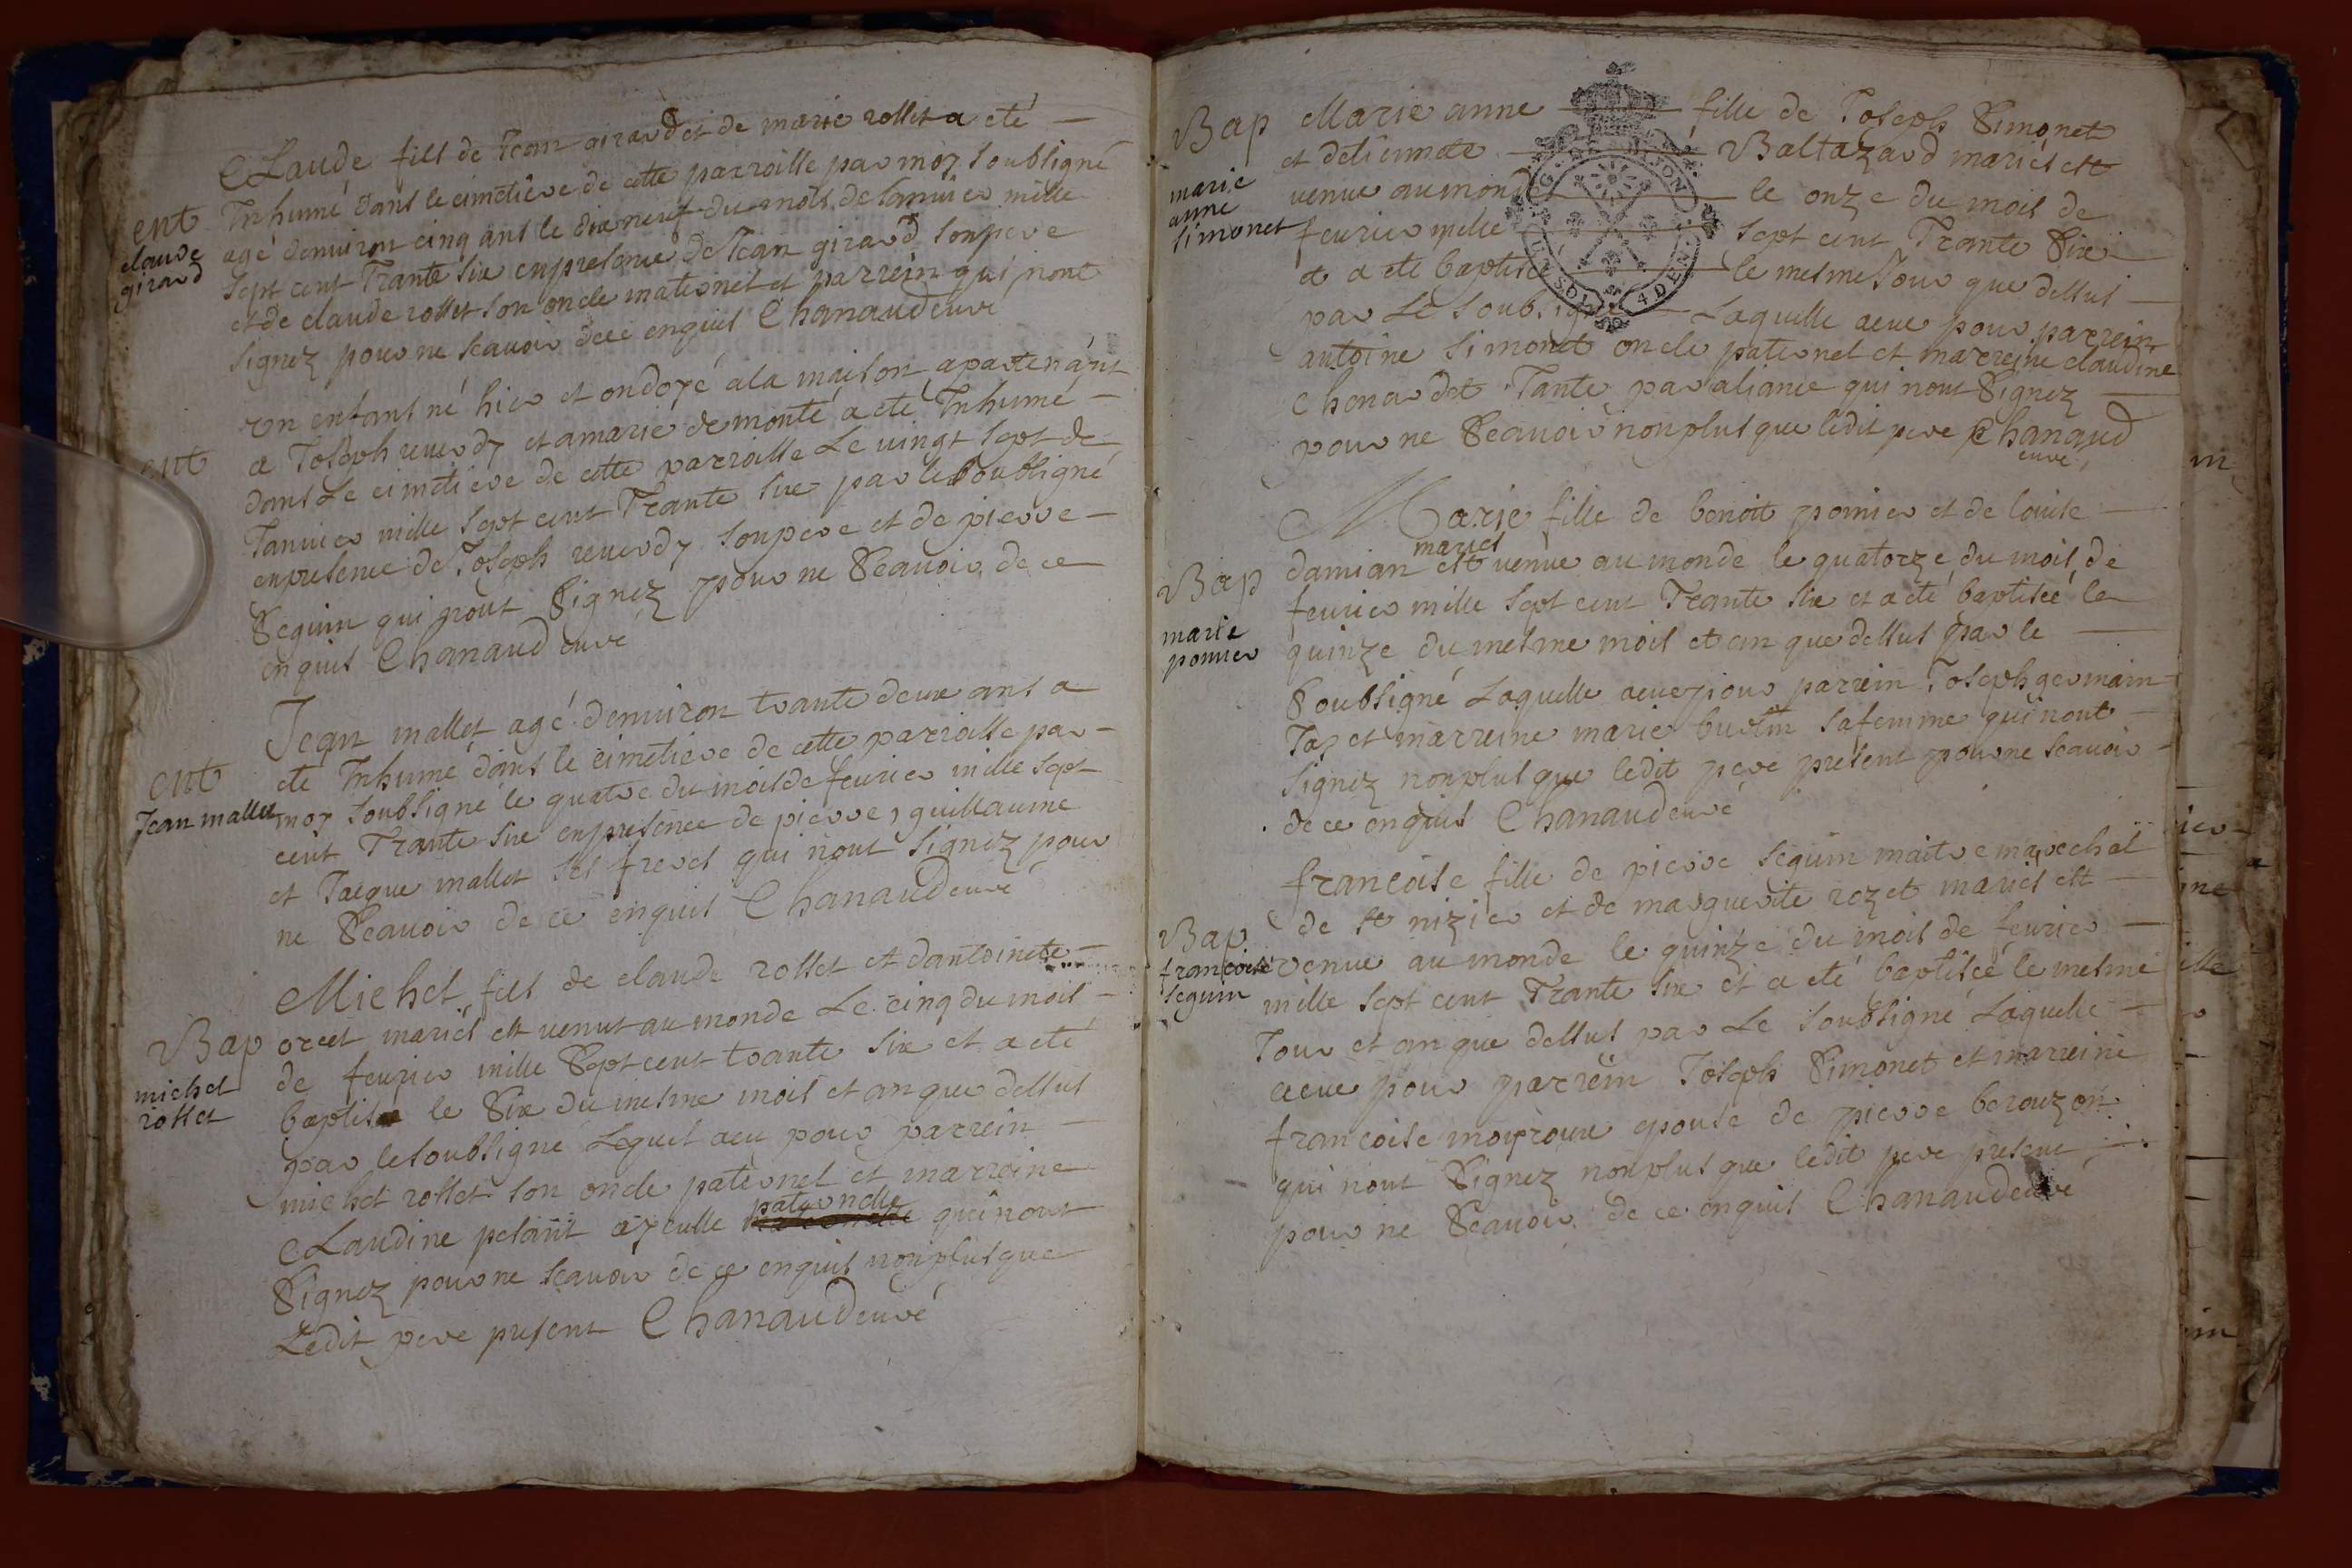 Claude fils de Jean girard et de marie rollet a eté
ent Inhumé dans le cimetière de cette parroisse par moy soubsigné
claude girard
agé denuiron cinq ans le dix neuf du mois de Januier mille
sept cent Trante six en presence de Jean girard son pere
et de claude rollet son oncle maternel et parrein qui nont
signez pour ne scauoir de ce enquis Chanaudeuvé
ent
un enfant né hier et ondoyé a la maison apartenant
a Joseph reuerdy et a marie de monté a eté Inhumé
dans Le cimetiere de cette parroisse Le uingt sept de
Januier mille sept cent Trante six par le soubsigné
en presence de Joseph reuerdy son pere et de pierre
Seguin qui nont Signez pour ne Scauoir de ce
enquis Chanaudeuvé
Jean mallet agé denuiron trante deux ans a
ent eté Inhumé dans le cimetiere de cette parroisse par
Jean mallet moy soubsigné le quatre du mois de feurier mille sept
cent Trante six en presence de pierre, guillaume
et Jacque mallet ses freres qui nont signez pour
ne Scauoir de ce enquis Chanaudeuvé
Michel fils de claude rollet et dantoinete
Bap orcet mariés est venut au monde Le cinq du mois
michel rollet
de feurier mille Sept cent trante six et a eté
baptisé le Six du mesme mois et an que dessus
par le soubsigne Lequel a eu pour parrein
michel rollet son oncle paternel et marreine
paternelle
CLaudine pesant ayeulle qui nont
Signez pour ne scauoir de ce enquis non plus que
Ledit pere present Chanaudeuvé
Bap Marie anne fille de Joseph Simonet
marie anne simonet
et detiennete Baltazard mariés est
venue au monde le onze du mois de
feurier mille sept cent Trante Six
et a eté baptisée le mesme Jour que dessus
par Le soubsigné Laquelle a eue pour parrein
antoine simonet oncle paternel et marreine claudine
chenardet Tante par aliance qui nont Signez
pour ne Scauoir non plus que ledit pere Chanaud
euvé
Marie fille de benoit ponier et de louise
mariés
Bap damian est venue au monde le quatorze du mois de
marie ponier
feurier mille sept cent Trante six et a eté baptisée le
quinze du mesme mois et an que dessus par le
Soubsigné Laquelle a eue pour parrein Joseph germain
Jay et marreine marie burtin sa femme qui nont
signez non plus que ledit pere present pour ne scauoir
de ce enquis Chanaudeuvé
francoise fille de pierre seguin maitre marechal
de st nizier et de marguerite rozet mariés est
Bap francoise seguin
venue au monde le quinze du mois de feurier
mille sept cent Trante six et a eté baptisée le mesme
Jour et an que dessus par Le soubsigné Laquelle
a eue pour parrein Joseph Simonet et marreine
francoise epouse de pierre berouzon
qui nont Signez non plus que ledit pere present
pour ne Scauoir de ce enquis Chanaudeuvé